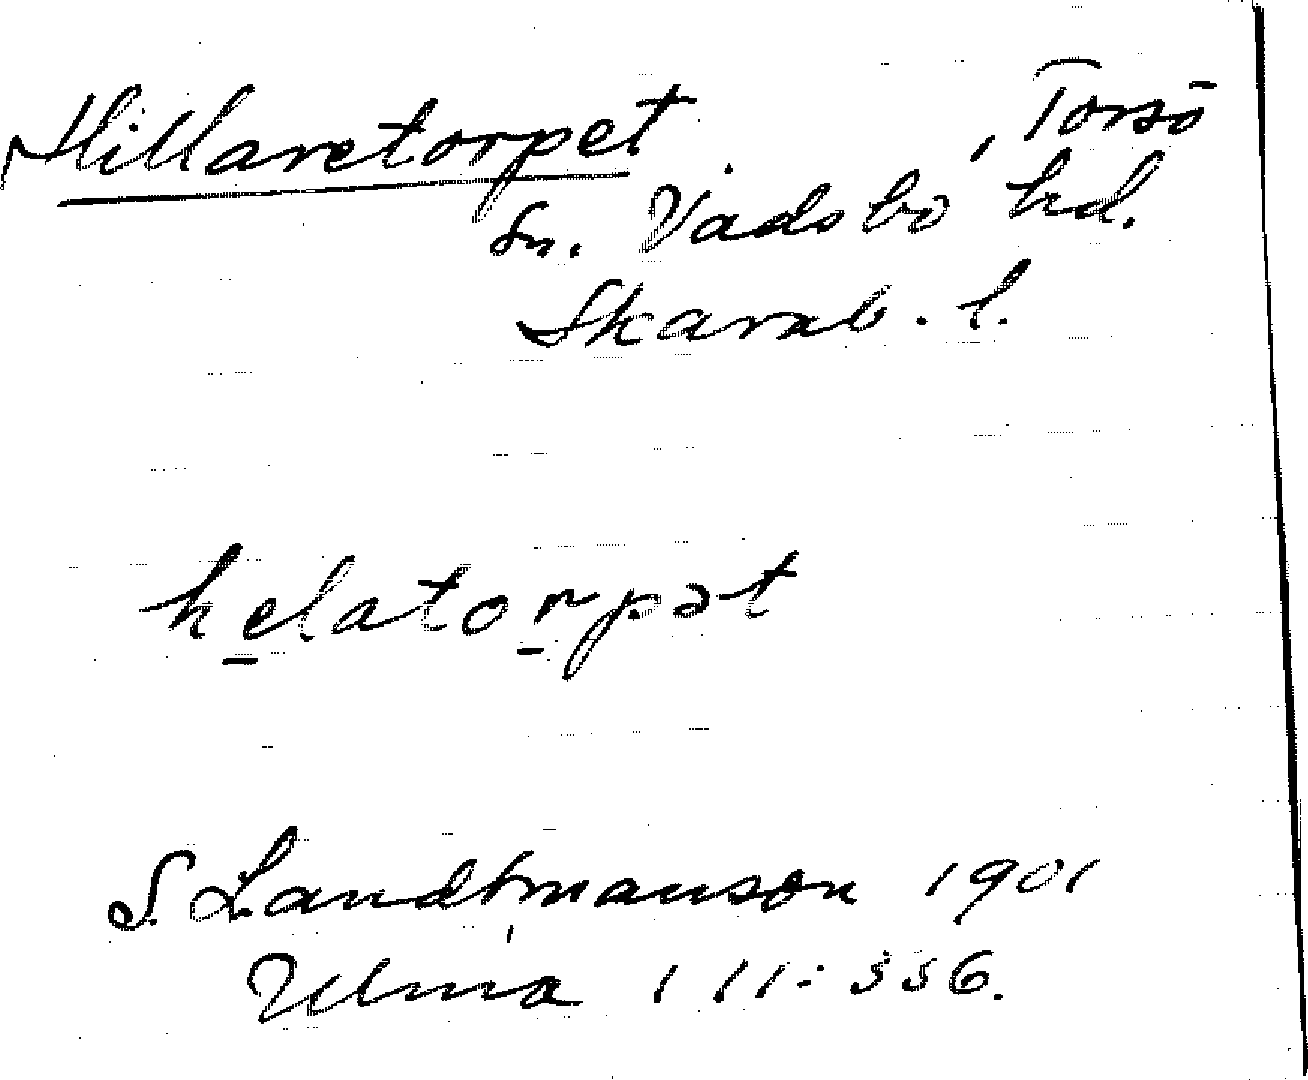 Hillaretorpet, Torsö
sn. Vadsbo hd.
Skarab. l.
helatorpət
S. Landtmanson 1901
Ulma 111:556.